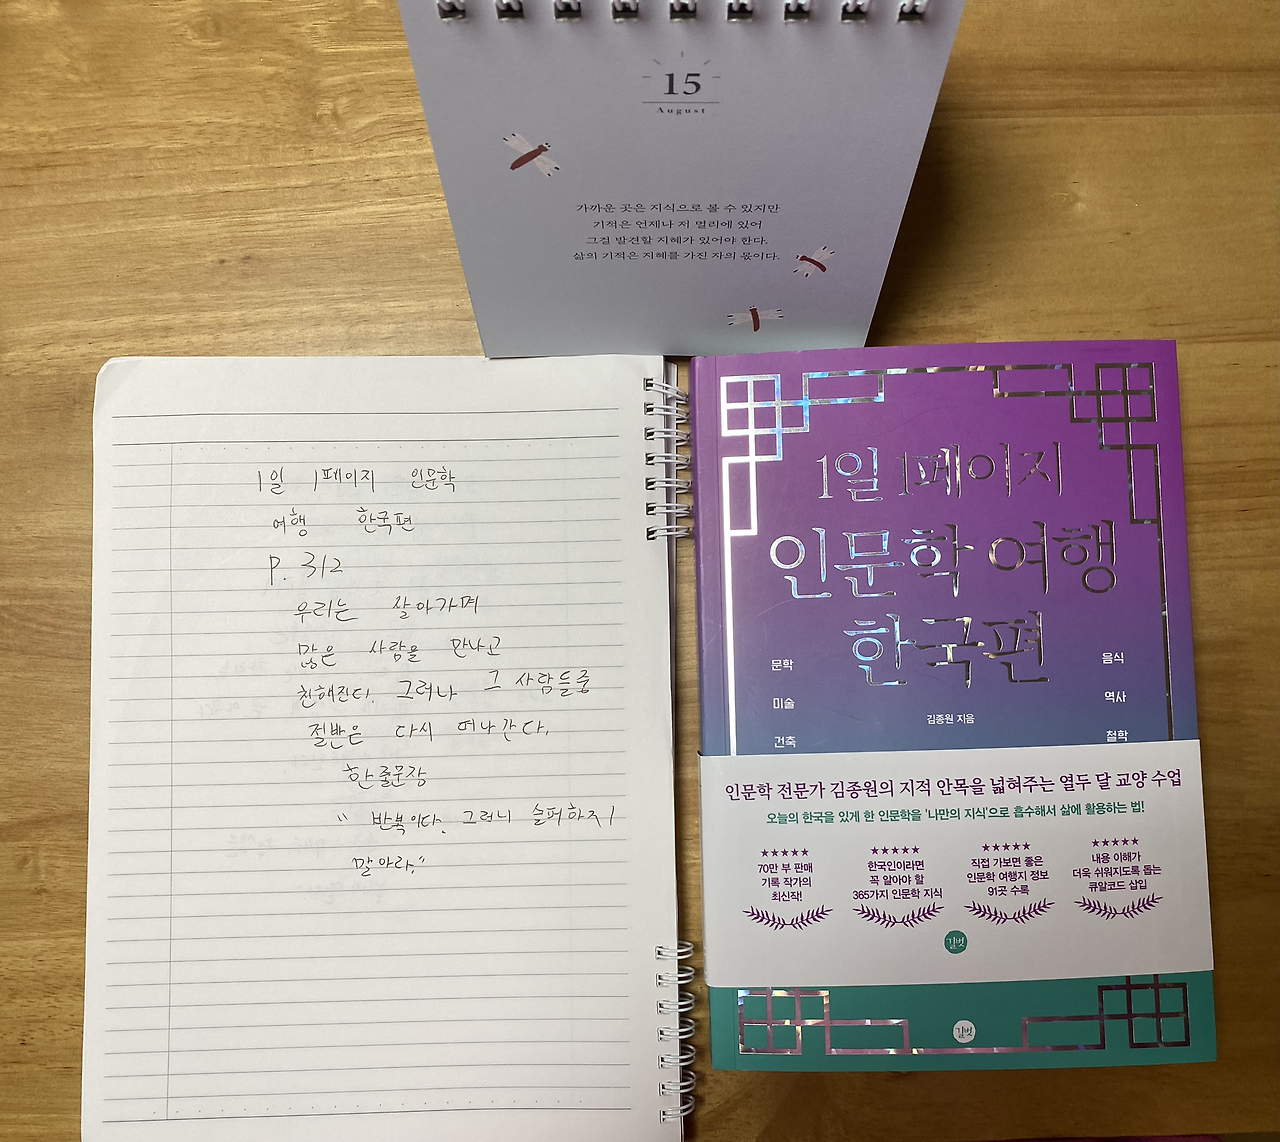 15
August
가까운 곳은 지식으로 볼 수 있지만
기적은 언제나 저 멀리에 있어
그걸 발견할 지혜가 있어야 한다.
삶의 기적은 지혜를 가진 자의 몫이다.
1일 1페이지 인문학
여행 한국편
P. 312
우리는 살아가며
많은 사람을 만나고
친해진다. 그러나 그 사람들중
절반은 다시 떠나간다.
한줄문장
" 반복이다. 그러니 슬퍼하지
말아라."
1일 1페이지
인문학 여행
한국편
문학
미술
건축
음식
역사
철학
김종원 지음
인문학 전문가 김종원의 지적 안목을 넓혀주는 열두 달 교양 수업
오늘의 한국을 있게 한 인문학을 '나만의 지식'으로 흡수해서 삶에 활용하는 법!
★★★★★
70만 부 판매
기록 작가의
최신작!
★★★★★
한국인이라면
꼭 알아야 할
365가지 인문학 지식
★★★★★
직접 가보면 좋은
인문학 여행지 정보
91곳 수록
★★★★★
내용 이해가
더욱 쉬워지도록 돕는
큐알코드 삽입
길벗
길벗